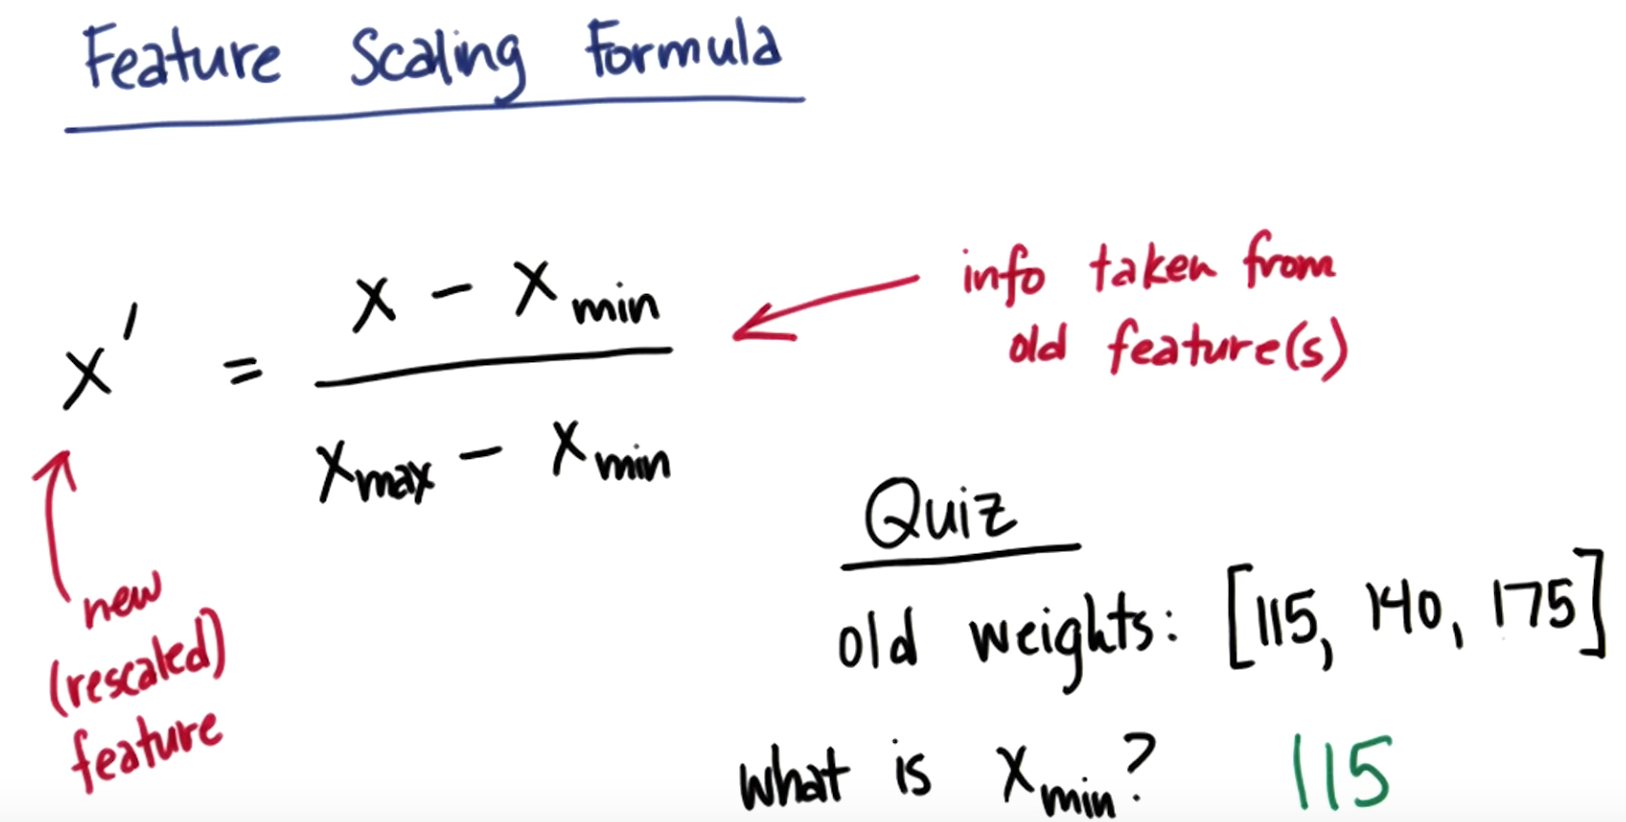 Feature Scaling Formula
x' = (x - x min) / (x max - x min)
info taken from
old feature(s)
new
(rescaled)
feature
Quiz
old weights: [115, 140, 175]
what is x min? 115